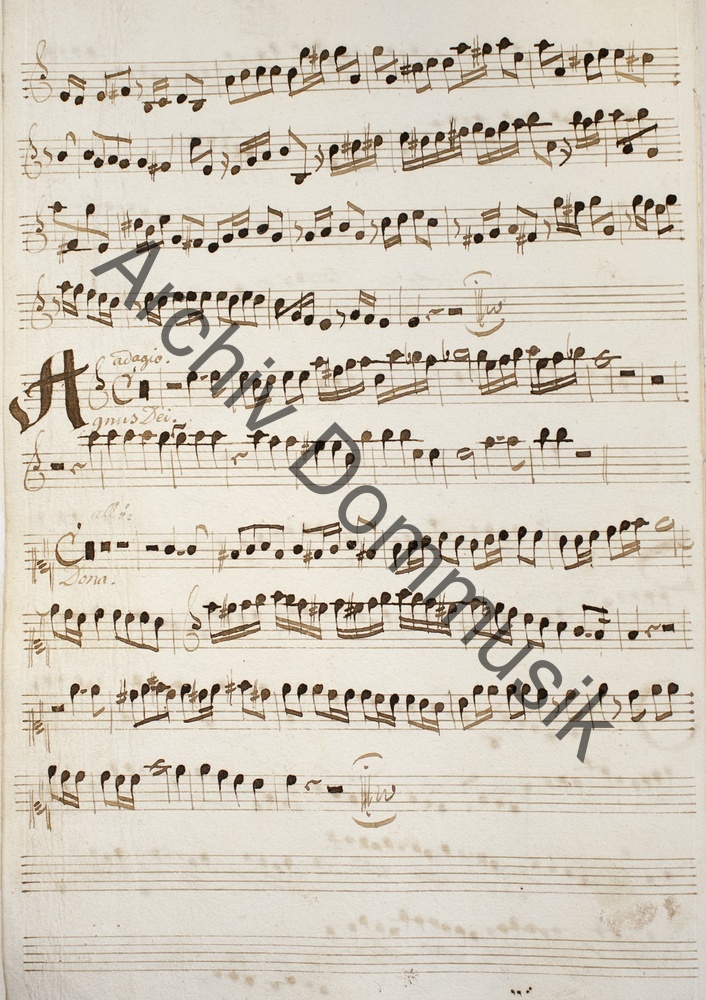 adagio.
Agnus Dei.
all̊:
Dona.
Archiv Dommusik